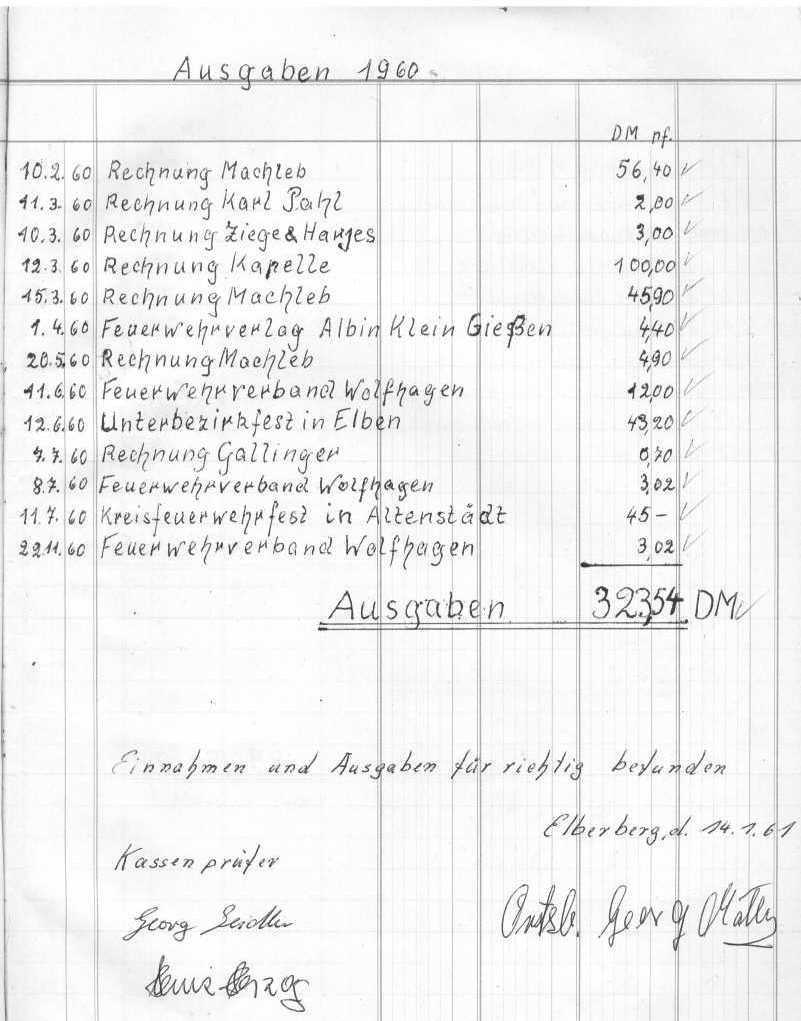 Ausgaben 1960
DM pf.
10.2.60 Rechnung Machleb 56,40 ✓
11.3.60 Rechnung Karl Pahl 2,00 ✓
10.3.60 Rechnung Ziege & Harjes 3,00 ✓
12.3.60 Rechnung Kapelle 100,00 ✓
15.3.60 Rechnung Machleb 45,90 ✓
1.4.60 Feuerwehrverlag Albin Klein Gießen 4,40 ✓
20.5.60 Rechnung Machleb 4,90 ✓
11.6.60 Feuerwehrverband Wolfhagen 12,00 ✓
12.6.60 Unterbezirkfest in Elben 43,20 ✓
7.7.60 Rechnung Gallinger 0,70 ✓
8.7.60 Feuerwehrverband Wolfhagen 3,02 ✓
11.7.60 Kreisfeuerwehrfest in Altenstädt 45- ✓
22.11.60 Feuerwehrverband Wolfhagen 3,02 ✓
Ausgaben 323,54 DM ✓
Einnahmen und Ausgaben für richtig befunden
Elberberg, d. 14.1.61
Kassenprüfer
Georg
Ortsb. Georg